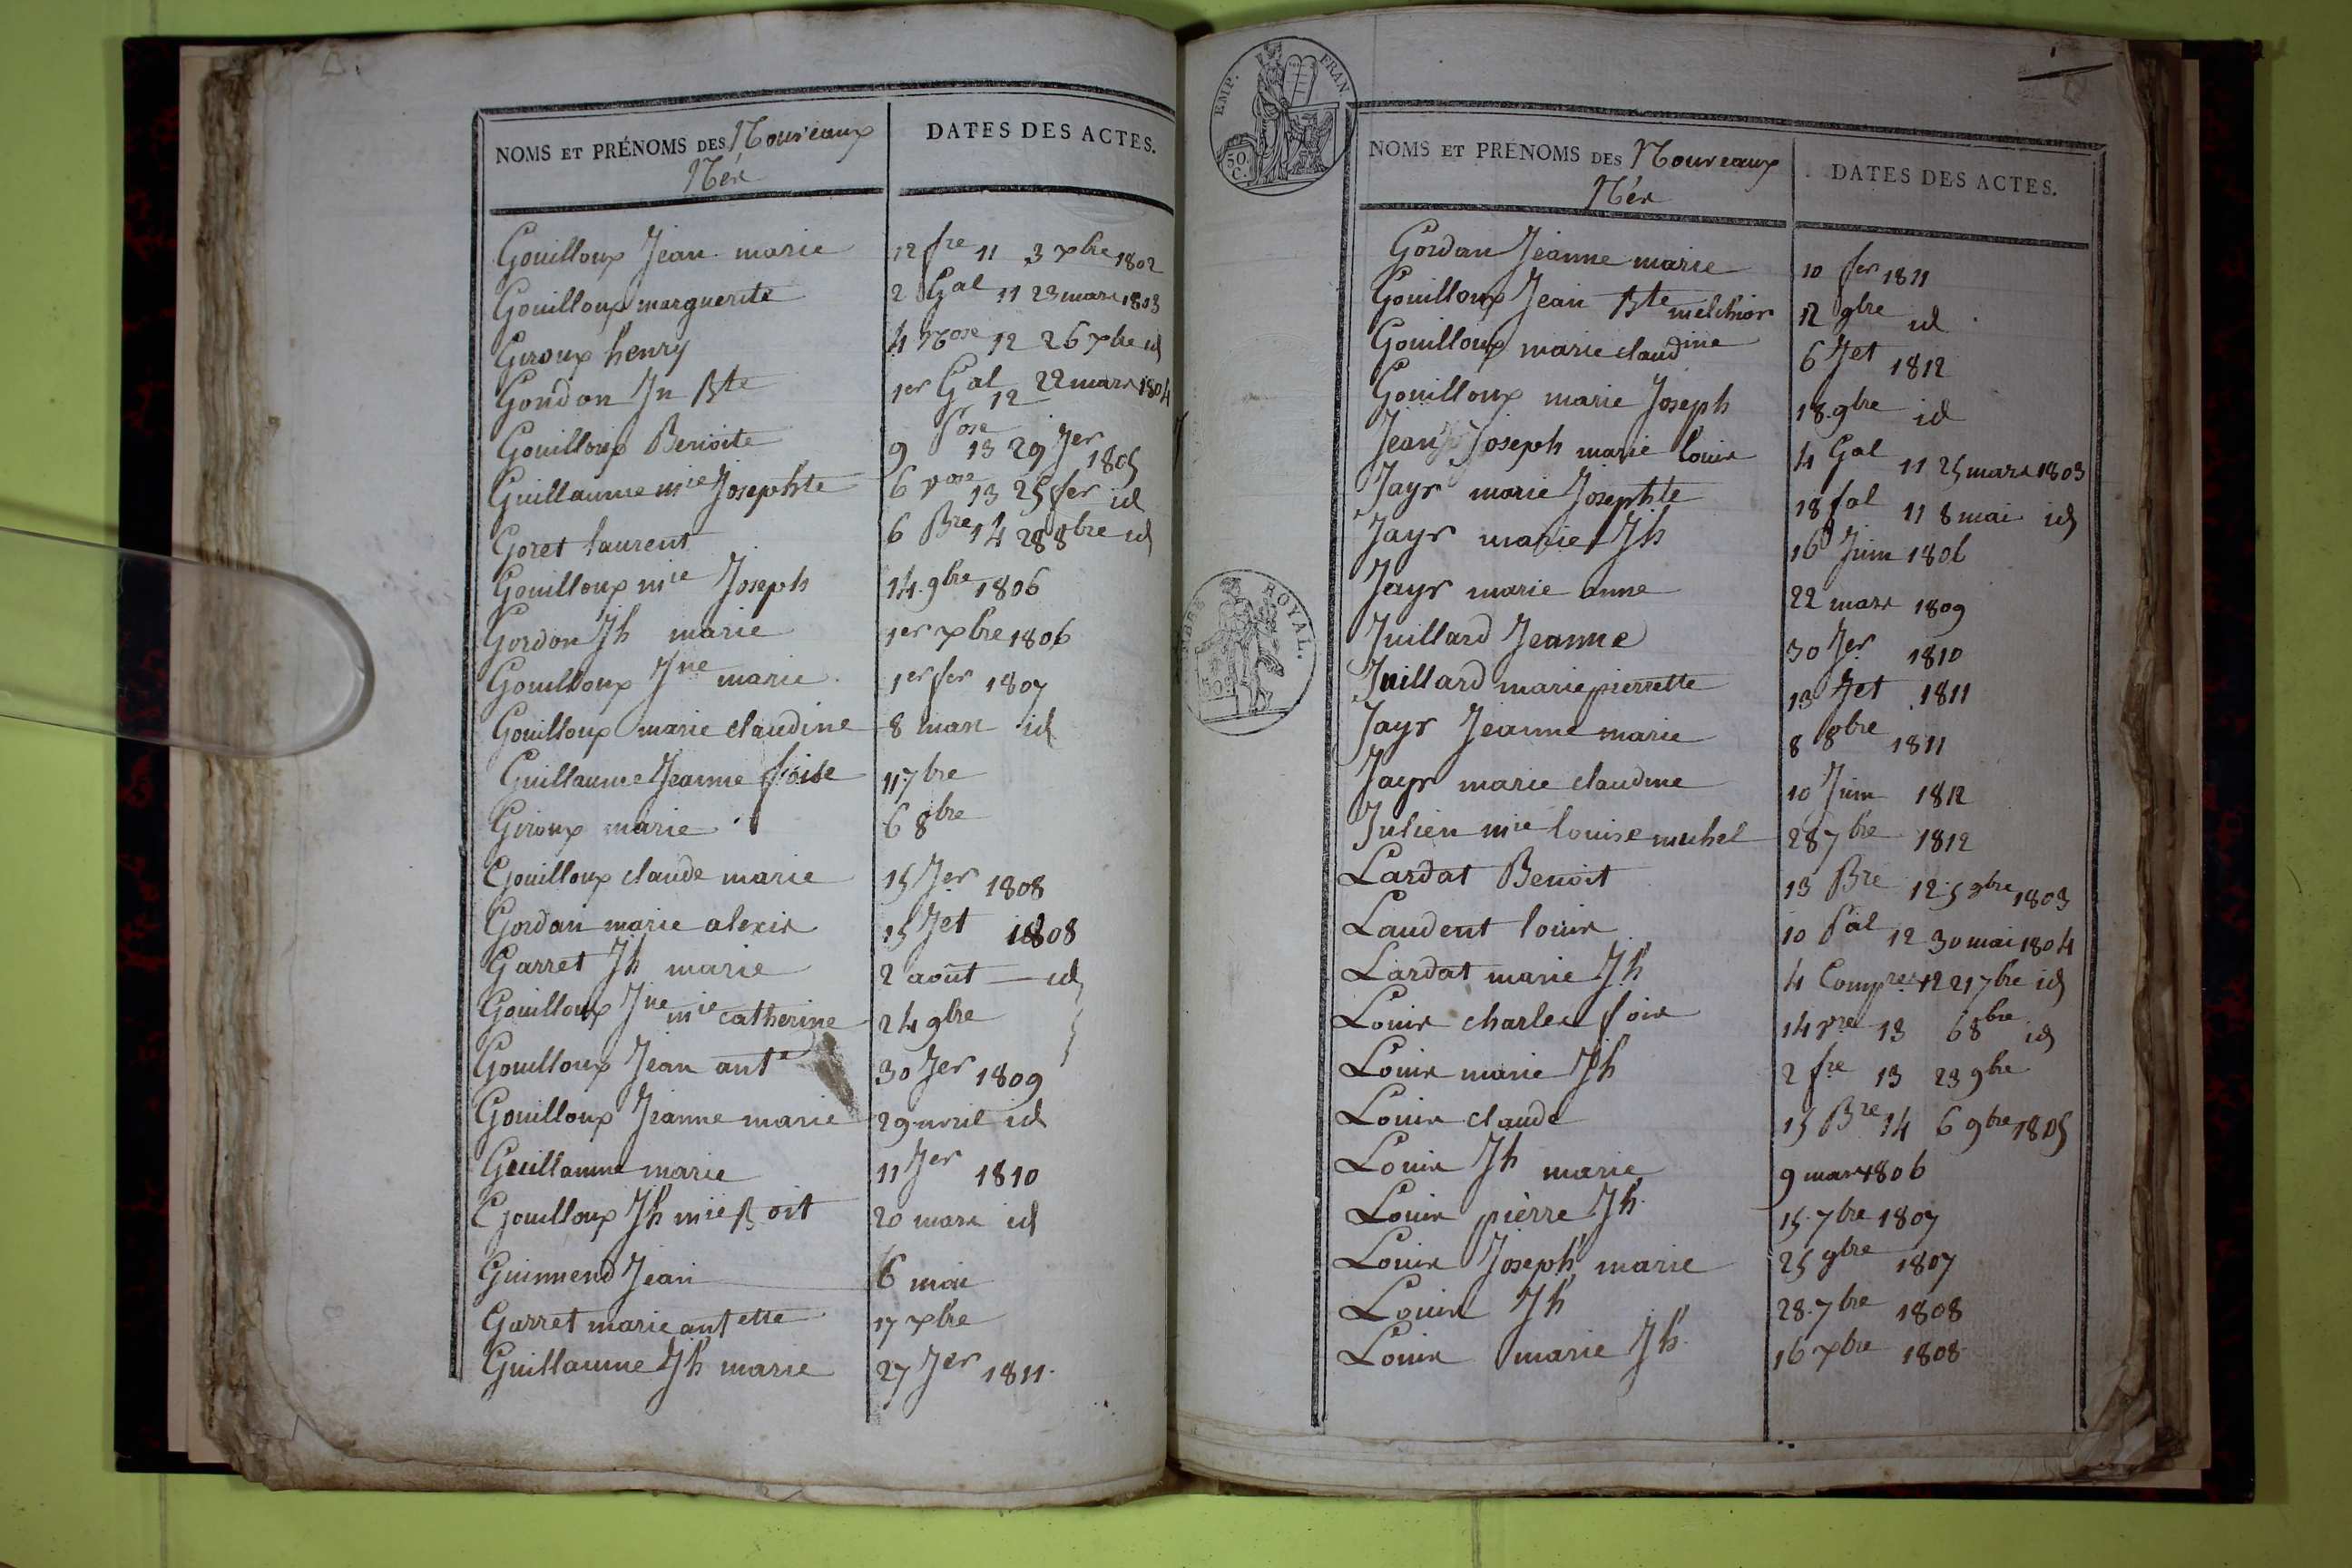 NOMS ET PRÉNOMS DES Nouveaux
Nés
DATES DES ACTES.
Gouilloux Jean marie 12 fre 11 3 xbre 1802
Gouilloux marguerite 2 Gal 11 23 mars 1803
Giroux henry 4 Nose 12 26 xbre id
Gondon Jn Bte 1er Gal 12 22 mars 1804
Gouilloux Benoite 9 Pose 13 29 Jer 1805
Guillaume mie Josephte 6 vose 13 25 fer id
Goret laurent 6 Bre 14 28 8bre id
Gouilloux mie Joseph 14 9bre 1806
Gordon Jh marie 1er xbre 1806
Gouilloux Jne marie 1er fer 1807
Gouilloux marie claudine 8 mars id
Guillaume Jeanne foise 11 7bre
Giroux marie 6 8bre
Gouilloux claude marie 15 Jer 1808
Gordan marie alexis 15 Jet 1808
Garret Jh marie 2 août id
Gouilloux Jne mie catherine 24 9bre
Gouilloux Jean ante 30 Jer 1809
Gouilloux Jeanne marie 29 avril id
Guillaume marie 11 Jer 1810
Gouilloux Jh mie Boit 20 mars id
Guinnend Jean 6 mai
Garret marie antette 17 xbre
Guillaume Jh marie 27 Jer 1811.
EMP. FRAN.
50.
C.
ROYAL.
NOMS ET PRÉNOMS DES Nouveaux
Nés
DATES DES ACTES.
Gordan Jeanne marie 10 fer 1811
Gouilloux Jean Bte melchior 12 9bre id
Gouilloux marie claudine 6 Jet 1812
Gouilloux marie Joseph 18 9bre id
Jean Joseph marie louis 4 Gal 11 25 mars 1803
Jayr marie Josephte 18 fal 11 8 mai id
Jayr marie Jh 16 Juin 1806
Jayr marie anne 22 mars 1809
Juillard Jeanne 30 Jer 1810
Juillard marie pierrette 13 Jet 1811
Jayr Jeanne marie 8 8bre 1811
Jayr marie claudine 10 Juin 1812
Julien mie louise michel 28 7bre 1812
Lardat Benoit 13 Bre 12 5 9bre 1803
Laudent louis 10 Pal 12 30 mai 1804
Lardat marie Jh 4 Compres 12 21 7bre id
Louis charles fois 14 vre 13 6 8bre id
Louis marie Jh 2 fre 13 23 9bre
Louis claude 15 Bre 14 6 9bre 1805
Louis Jh marie 9 mars 1806
Louis pierre Jh 15 7bre 1807
Louis Joseph marie 25 9bre 1807
Louis Jh 28 7bre 1808
Louis marie Jh 16 xbre 1808